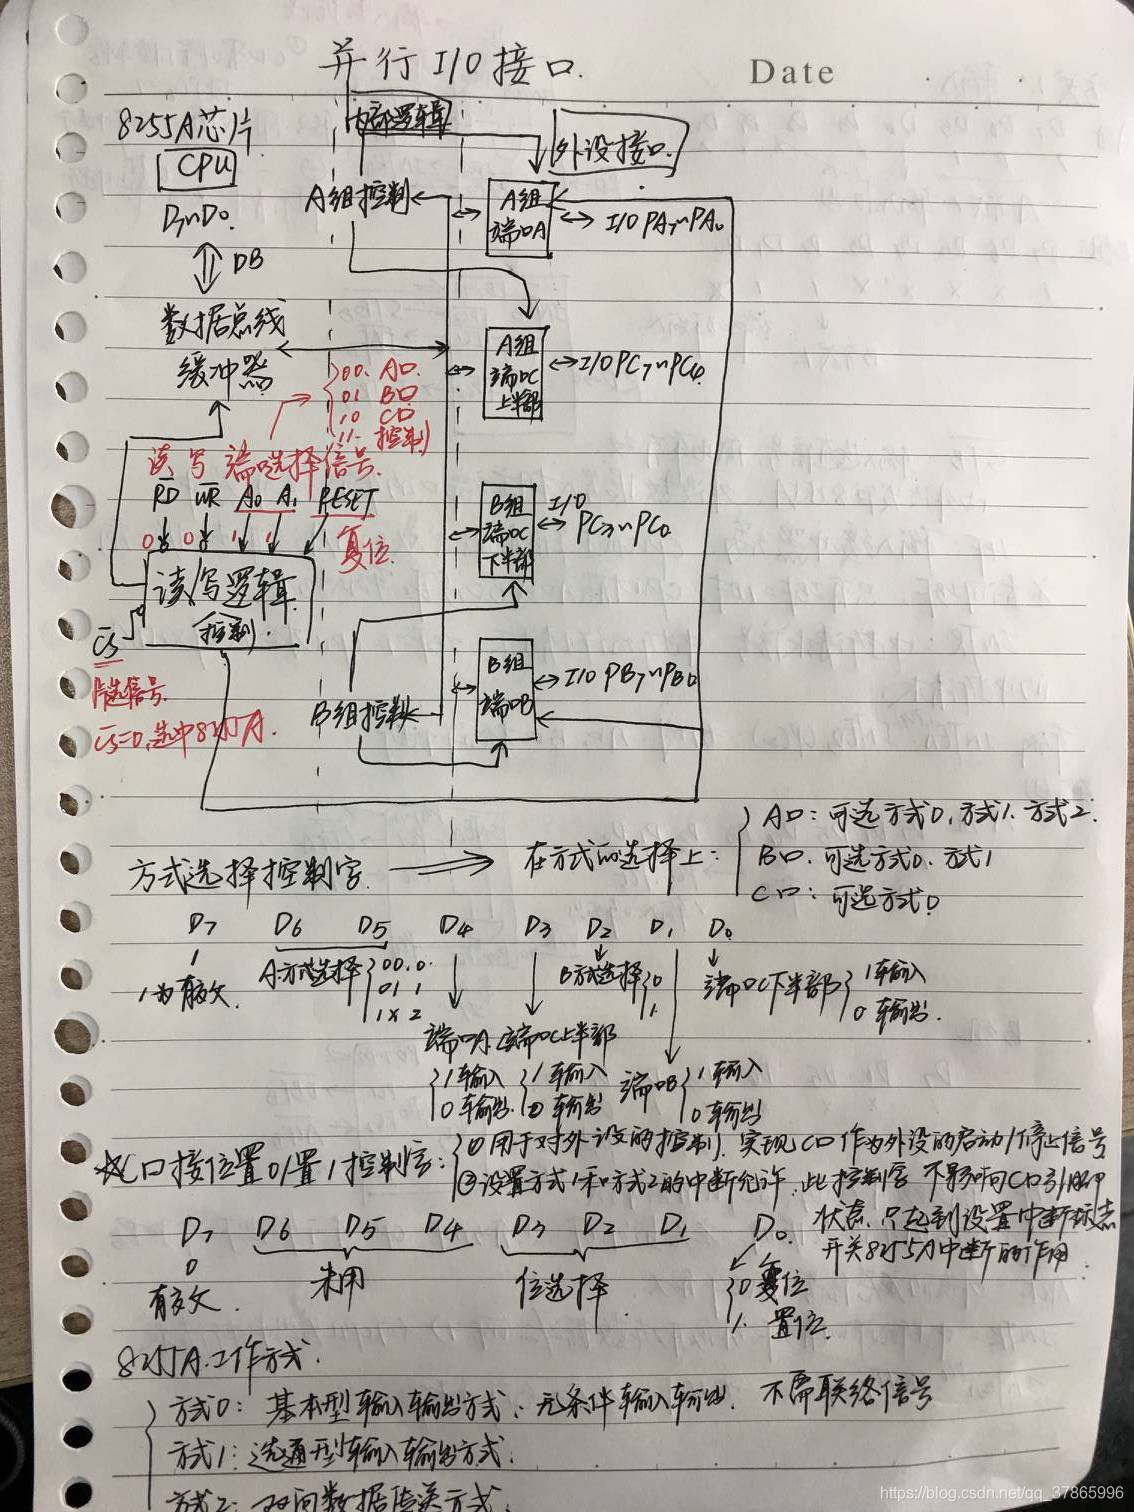 并行I/O接口.
Date
8255A芯片
内部逻辑
外设接口.
CPU
D7~D0.
DB
A组控制
A组
端口A
I/O PA7~PA0
数据总线
缓冲器
A组
端口C
上半部
I/O PC7~PC4
00. A口.
01 B口.
10 C口
11. 控制
读 写 端口选择信号.
RD WR A0 A1 RESET
0 0 1 1
复位.
B组
端口C
下半部
I/O
PC3~PC0
读/写逻辑
控制.
CS
片选信号.
CS=0,选中8255A.
B组控制
B组
端口B
I/O PB7~PB0
方式选择控制字.
在方式的选择上:
A口: 可选方式0,方式1.方式2.
B口.可选方式0.方式1
C口: 可选方式0
D7 D6 D5 D4 D3 D2 D1 D0
1
1为有效.
A方式选择
00.0.
01 1
1X 2
B方式选择
0
1.
端口C下半部
1输入
0输出.
端口A
1输入
0输出.
端口C上半部
1输入
0输出
端口B
1输入
0输出
☆C口按位置0/置1控制字:
①用于对外设的控制,实现C口作为外设的启动/停止信号
②设置方式1和方式2的中断允许,此控制字 不影响C口引脚
状态,只起到设置中断标志
开关8255A中断的作用
D7 D6 D5 D4 D3 D2 D1 D0.
0
有效.
未用
位选择
0 复位
1. 置位.
8255A.工作方式.
方式0: 基本型输入输出方式. 无条件输入输出. 不需联络信号
方式1: 选通型输入输出方式.
方式2: 双向数据传送方式.
https://blog.csdn.net/qq_37865996